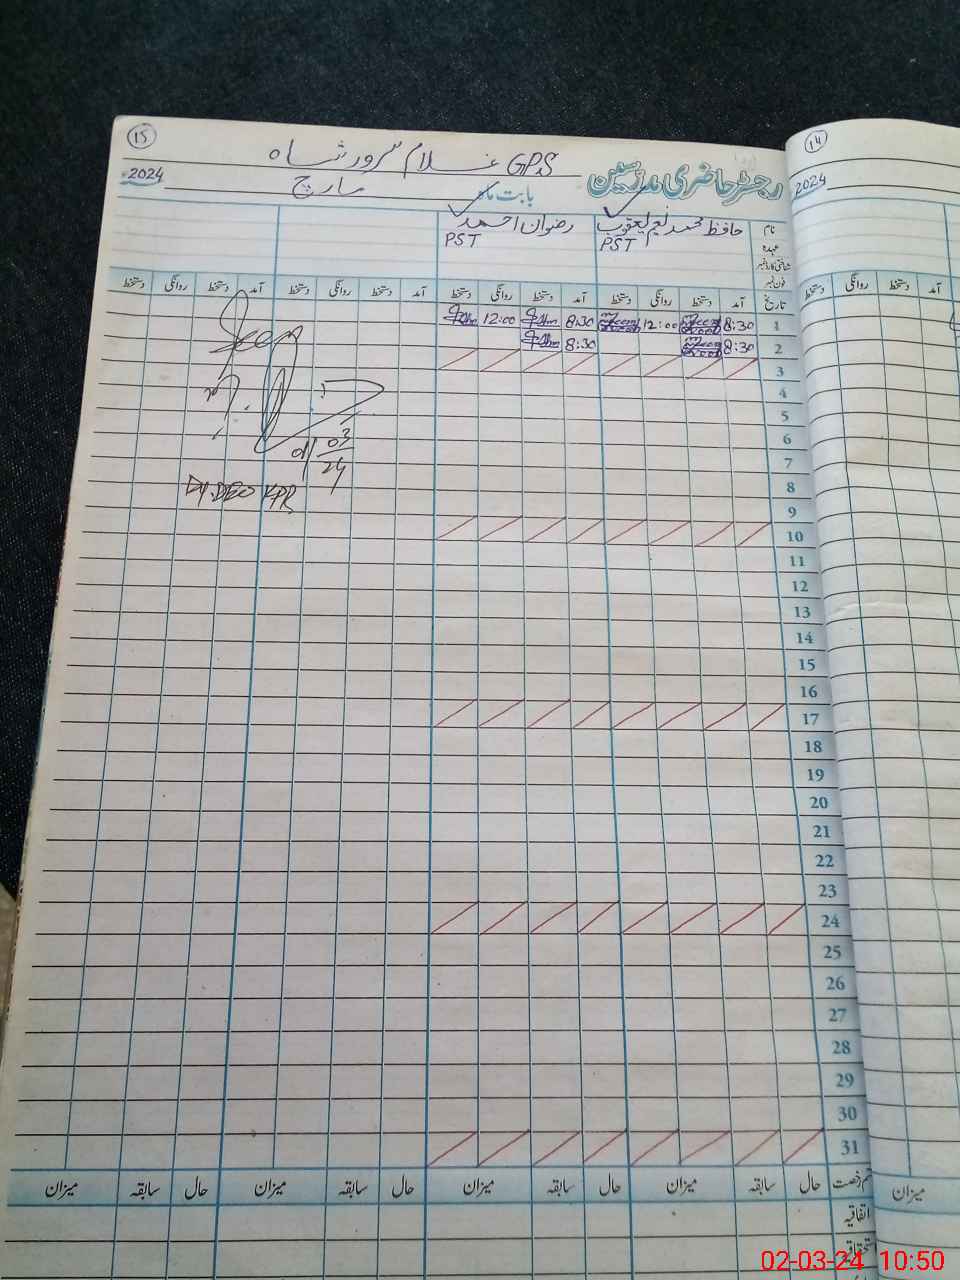 15
GPS غلام سرور شاہ
رجسٹر حاضری مدرسین
بابت ماہ مارچ 2024
نام حافظ محمد نعیم یعقوب رضوان احمد
عہدہ PST PST
شناختی کارڈ نمبر
فون نمبر
تاریخ آمد دستخط روانگی دستخط آمد دستخط روانگی دستخط آمد دستخط روانگی دستخط آمد دستخط روانگی دستخط
1 8:30 12:00 8:30 12:00
2 8:30 8:30
3
4
5
6
7
8
9
10
11
12
13
14
15
16
17
18
19
20
21
22
23
24
25
26
27
28
29
30
31
Seen
01/03/24
Dy.DEO KPR
قسم رخصت حال سابقہ میزان حال سابقہ میزان حال سابقہ میزان حال سابقہ میزان
اتفاقیہ
استحقاقیہ
14
2024
آمد دستخط روانگی دستخط
میزان
02-03-24 10:50